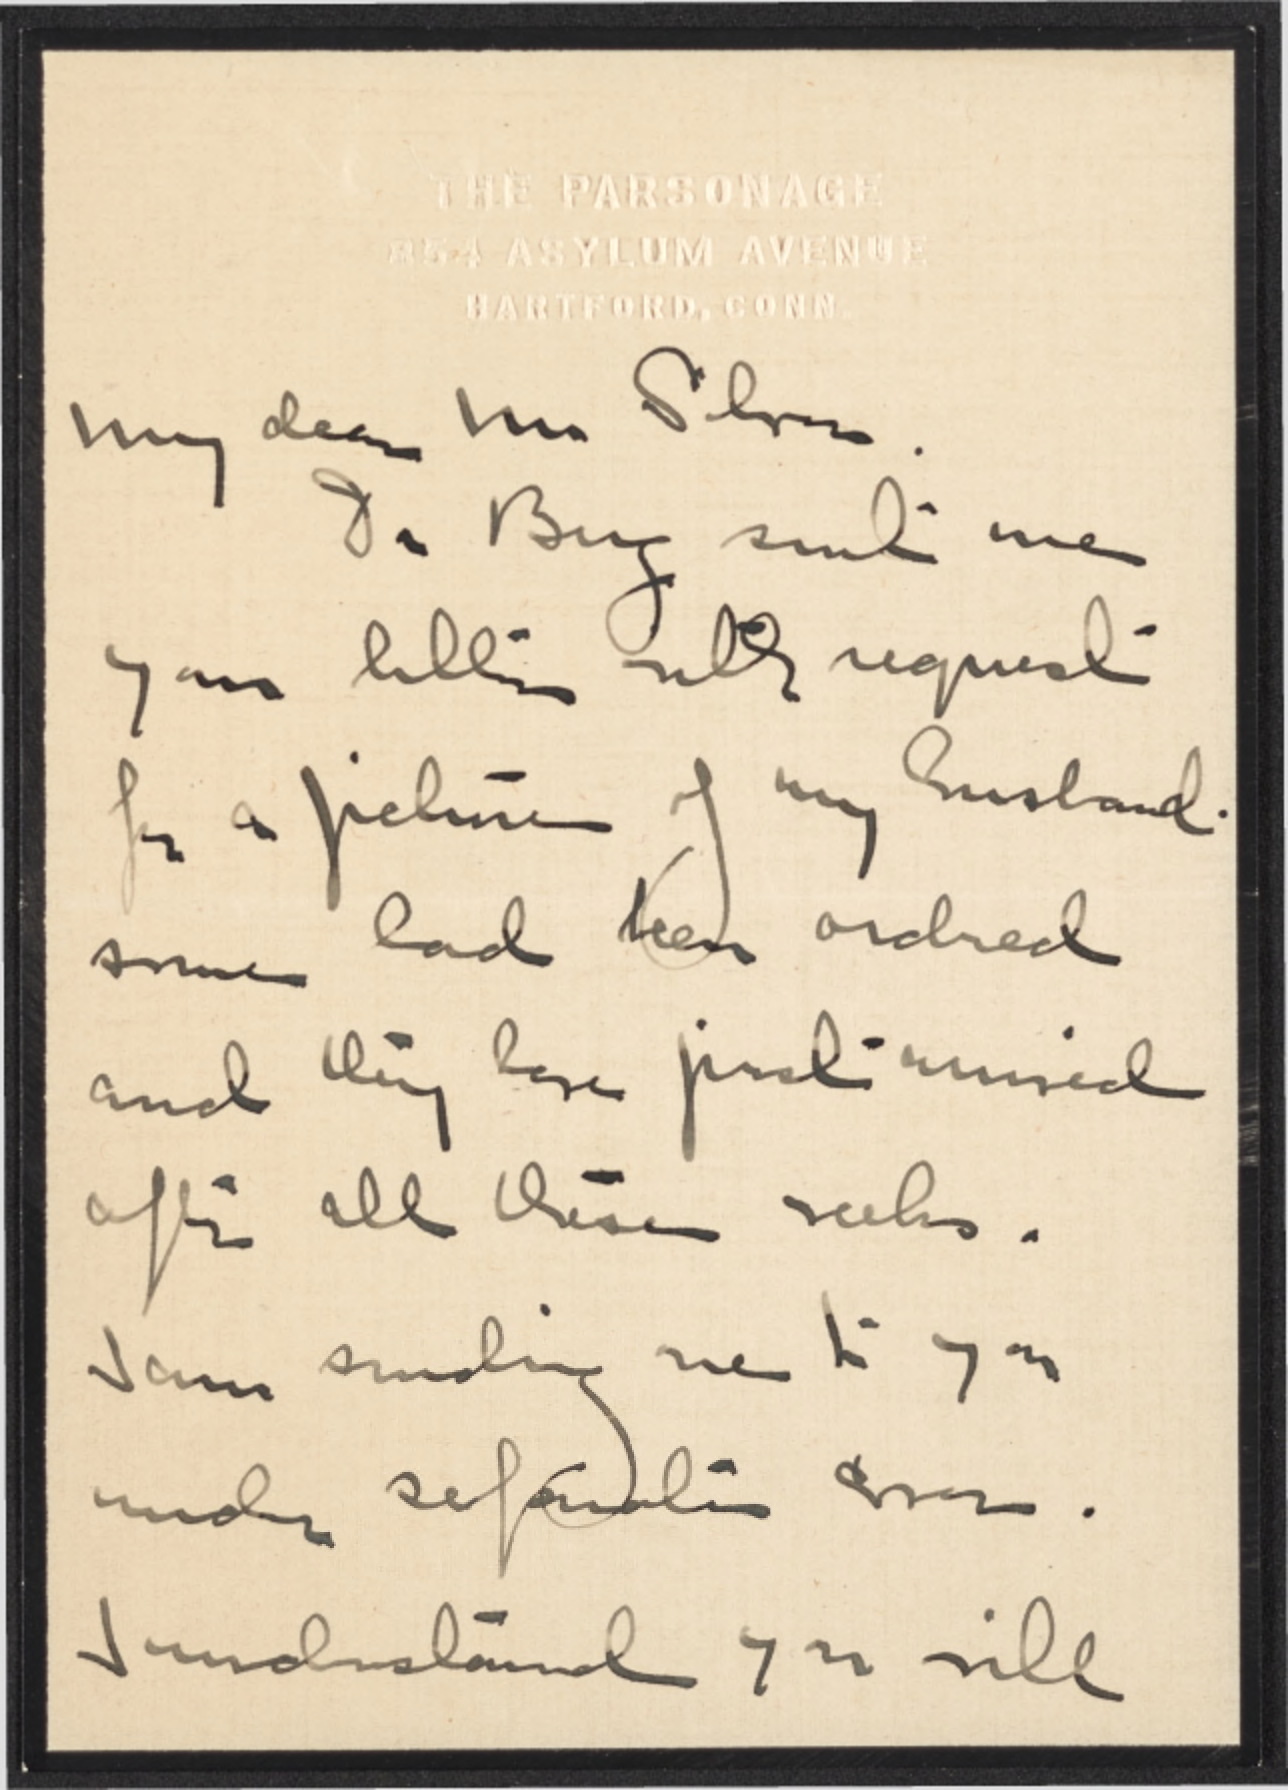 THE PARSONAGE
854 ASYLUM AVENUE
HARTFORD, CONN.
My dear Mr Silver.
Dr Berg sent me
your letter with request
for a picture of my husband.
some had been ordred
and they have just arrived
after all these weeks.
I am sending one to you
under separate cover.
I understand you will